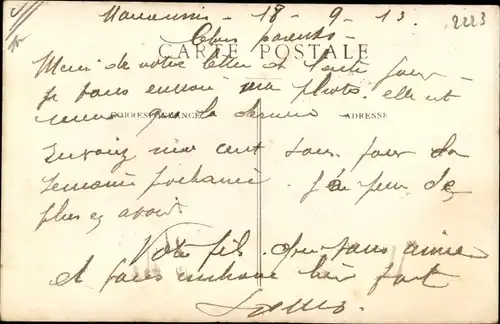 18 - 9 - 13
2223
Chers parents -
CARTE POSTALE
Merci de votre lettre et
je vous envoie ma photo. elle est
CORRESPONDANCE
ADRESSE
que la dernière
Envoyez moi cent sous pour la
semaine prochaine. J'ai peur de
plus en avoir
Votre fils qui vous aime
et vous embrasse bien fort